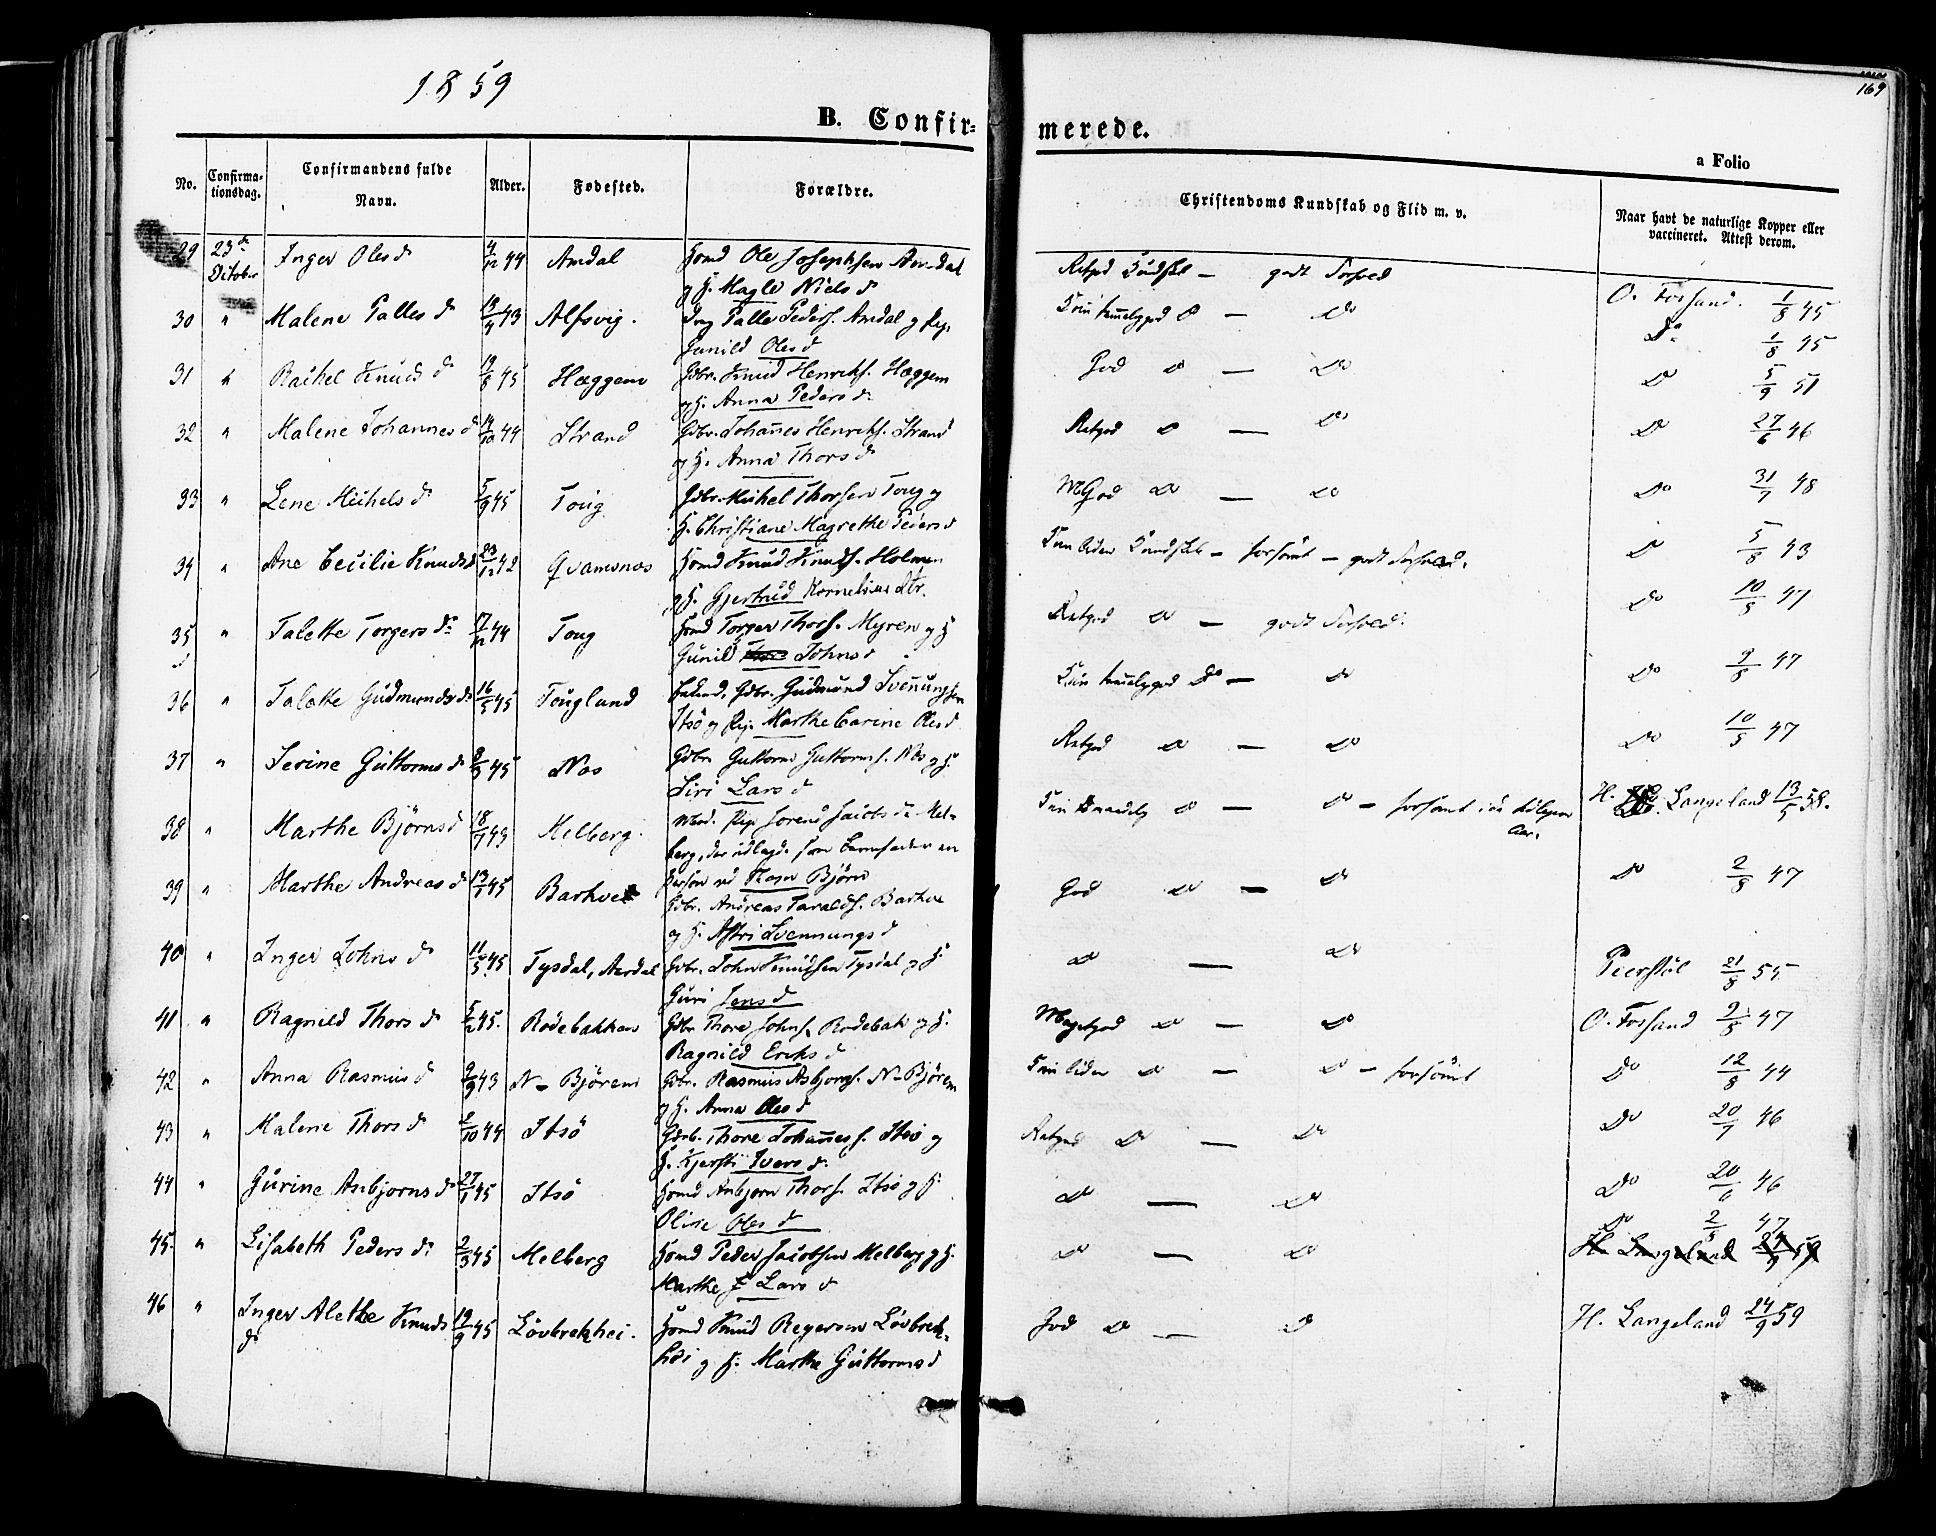 1859
169
B. Confir-
merede.
a Folio
No.
Confirma-
tionsdag.
Confirmandens fulde
Navn.
Alder.
Fødested.
Forældre.
Christendoms Kundskab og Flid m. v.
Naar havt de naturlige Kopper eller
vaccineret. Attest derom.
29 23de October Inger Olesd 4/12 44 Amdal Hsmd Ole Josephsen Amdal
og H. Magle Nielsd
Retgod Kundsk — godt Forhold O. Forsand. 1/8 45
30 " Malene Pallesd 4/43 Alfsvig. Palle Peders. Amdal og Pige
Gunild Olesd
Do 1/8 45
31 " Rachel Knudsd 19/8 45 Hæggem Gdbr. Knud Henriks. Hæggem
og H. Anna Pedersd
God do — do do 5/9 51
32 " Malene Johannesd 14/10 44 Strand Gdbr. Johannes Henriks. Strand
og H. Anna Thorsd
Retgod do — do do 27/6 46
33 " Lene Michelsd 5/9 45 Toug Gdbr. Michel Thorsen Toug og
H. Christiane Magrethe Pedersd
MGod do — do do 31/7 48
34 " Ane Cecilie Knudsd 23/12 42 Qvamsnæs Hsmd Knud Knuds. Holmen
og H. Gjertrud Kornelius Dtr.
Kun liden Kundsk — forsømt — godt Forhold. do 5/8 43
35 " Talette Torgersd 17/12 44 Toug Hsmd Torger Thors. Myren og H
Gunild Johnsd
Retgod do — godt Forhold. do 10/5 47
36 " Talette Gudmundsd 16/5 45 Tougland Gdbr. Gudmund Svenungsen
Itsø og Pige Marthe Carine Olesd
Kun temmeliggod do — do do 9/5 47
37 " Serine Guttormsd 45 Nos Gdbr Guttorm Guttorms. Nos og H
Siri Larsd
Retgod do — do do 10/5 47
38 " Marthe Bjørnsd 18/7 43 Melberg. Pige Jacobsd Mel-
berg, der udlagde som Barnefader en
Person ved Bjørn
Kun do — do — forsømt H. Langeland 13/5 58.
39 " Marthe Andreasd 13/1 45 Barkved Gdbr. Andreas Taralds. Barkve
og H. Astri Svennungsd
God do — do do 2/8 47
40 " Inger Johnsd 11/5 45 Tysdal, Aardal Gdbr. John Knudsen Tysdal og H
Guri Jensd
do — do 21/8 55
41 " Ragnild Thorsd 5/2 45. Rødebakken Gdbr Thore Johns. Rødebak og H.
Ragnild Eriksd
Megetgod do — do O. Forsand 2/8 47
42 " Anna Rasmusd 2/9 43 N- Bjøreim Gdbr. Rasmus Asbjørns. N- Bjøreim
og H. Anna Olesd
Kun liden do — do — forsømt do 12/8 44
43 " Malene Thorsd 2/10 44 Itsø Gdbr. Thore Johanness. Itsø og
H. Kjersti Iversd
Retgod do — do do 20/7 46
44 " Gurine Anbjørnsd 27/1 45 Itsø Hsmd Anbjørn Thors. Itsø og H.
Olive Olesd
do — do do 20/ 46
45. " Lisabeth Pedersd. 2/3 45 Melberg Hsmd Peder Jacobsen Melberg og H.
Marthe Larsd
do — do do 2/5 47
H. Langeland
46 " Inger Alethe Knuds
d 19/9 45 Løvbrekhei. Hsmd Knud Regersen Løvbrek-
hei og H. Marthe Guttormsd
God do — do H. Langeland 24/9 59